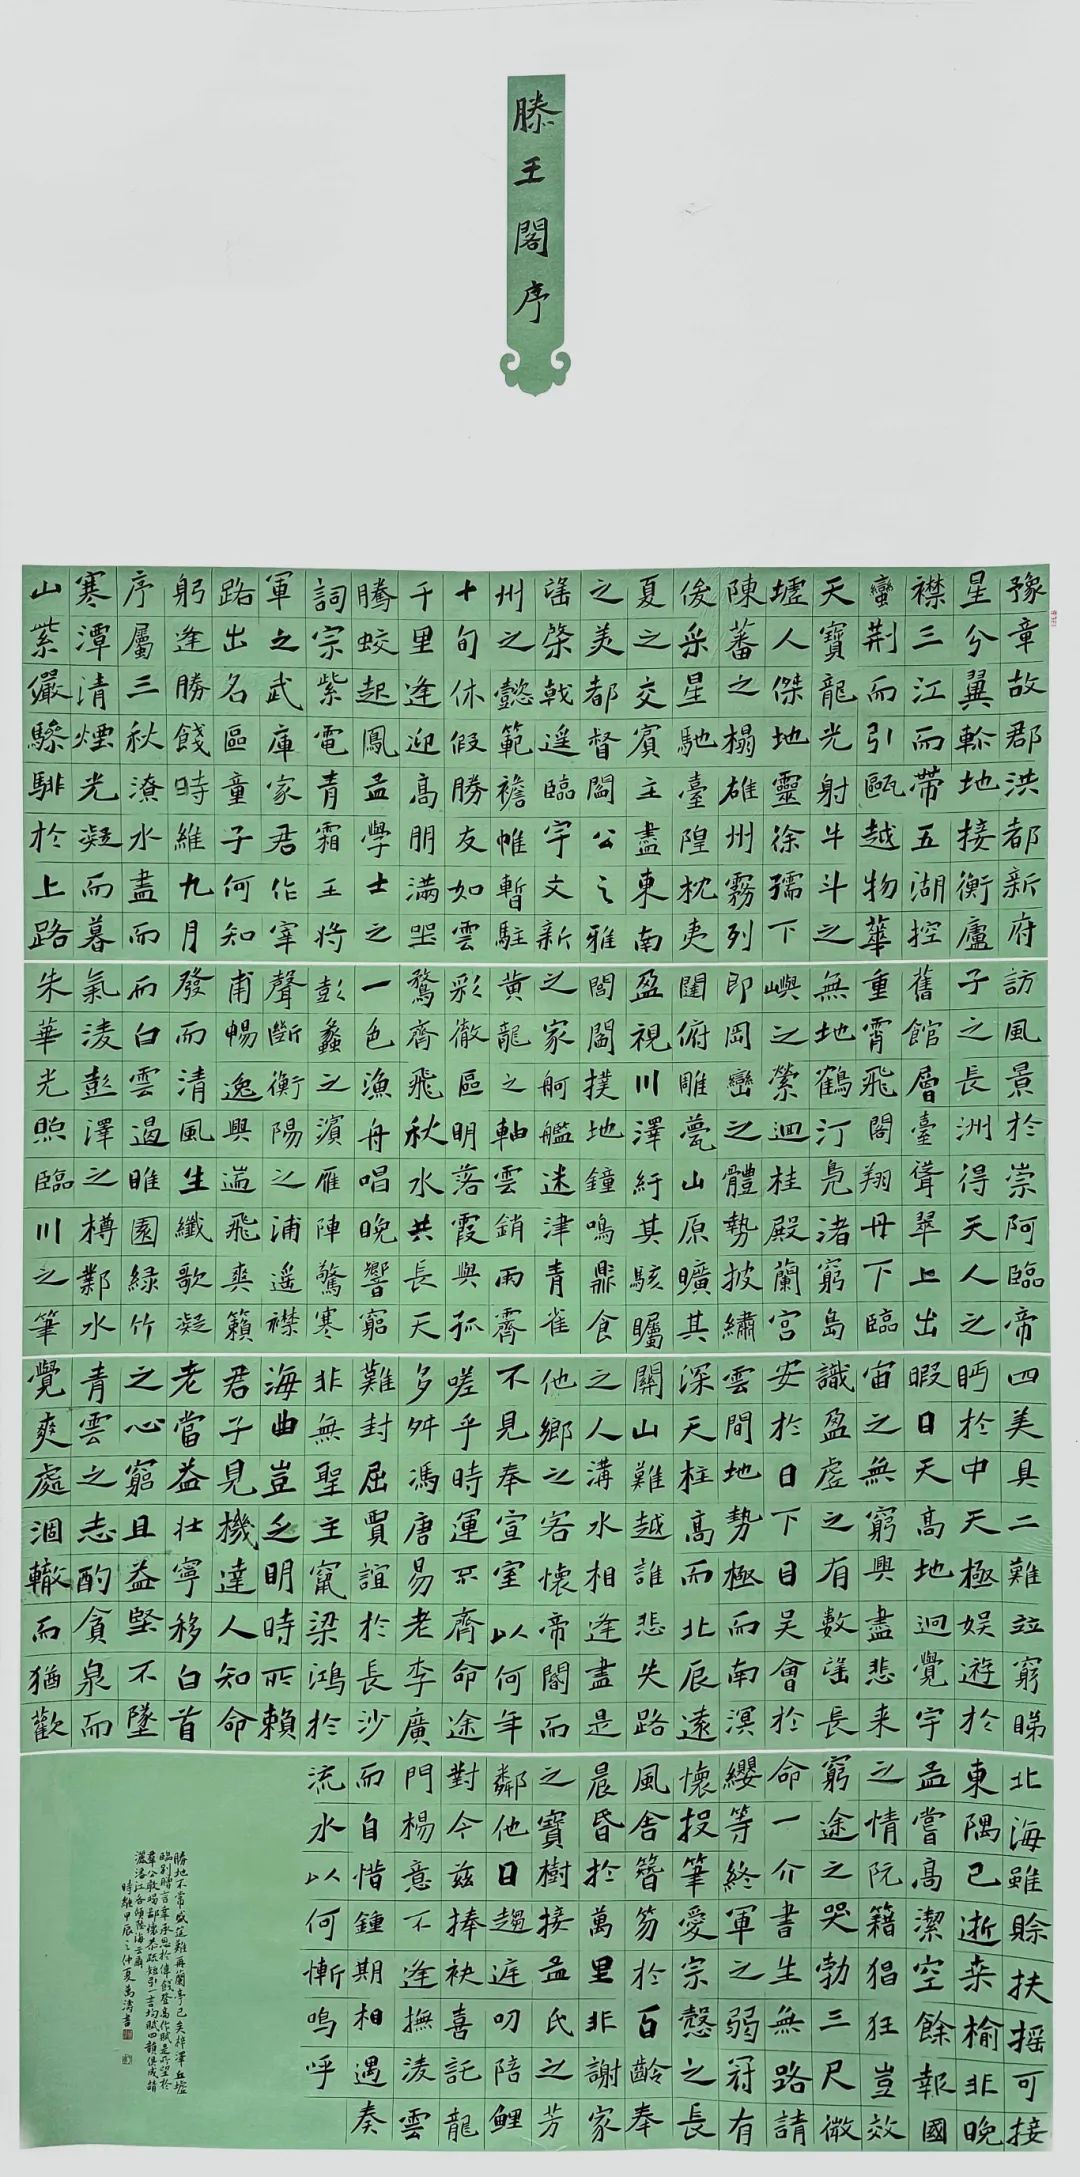 滕王閣序
豫章故郡洪都新府
星分翼軫地接衡廬
襟三江而帶五湖控
蠻荊而引甌越物華
天寶龍光射斗斗之
墟人傑地靈徐孺下
陳蕃之榻雄州霧列
俊采星馳臺隍枕夷
夏之交賓主盡東南
之美都督閻公之雅
謠棨戟遥臨宇文新
州之懿範襜帷暫駐
十旬休假勝友如雲
千里逢迎高朋滿坐
騰蛟起鳳孟學士之
詞宗紫電青霜王將
軍之武庫家君作宰
路出名區童子何知
躬逢勝餞時維九月
序屬三秋潦水盡而
寒潭清煙光凝而暮
山紫儼驂騑於上路
訪風景於崇阿臨帝
子之長洲得天人之
舊館層臺聳翠上出
重霄飛閣翔丹下臨
無地鶴汀鳧渚窮島
嶼之縈迴桂殿蘭宮
即岡巒之體勢披繡
闥俯雕甍山原曠其
盈視川澤紆其駭矚
閭閻撲地鐘鳴鼎食
之家舸艦迷津青雀
黃龍之軸雲銷雨霽
彩徹區明落霞與孤
鶩齊飛秋水共長天
一色漁舟唱晚響窮
彭蠡之濱雁陣驚寒
聲斷衡陽之浦遥襟
甫暢逸興遄飛爽籟
發而清風生纖歌凝
而白雲遏睢園綠竹
氣淩彭澤之樽鄴水
朱華光照臨川之筆
四美具二難竝窮睇
眄於中天極娛遊於
暇日天高地迥覺宇
宙之無窮興盡悲来
識盈虛之有數謠長
安於日下目吳會於
雲間地勢極而南溟
深天柱高而北辰遠
關山難越誰悲失路
之人溝水相逢盡是
他鄉之客懷帝閽而
不見奉宣室以何年
嗟乎時運不齊命途
多舛馮唐易老李廣
難封屈賈誼於長沙
非無聖主竄梁鴻於
海曲豈乏明時所賴
君子見機達人知命
老當益壯寧移白首
之心窮且益堅不墜
青雲之志酌貪泉而
覺爽處涸轍而猶歡
北海雖賒扶搖可接
東隅已逝桑榆非晚
孟嘗高潔空餘報國
之情阮籍猖狂豈效
窮途之哭勃三尺微
命一介書生無路請
纓等終軍之弱冠有
懷投筆愛宗慤之長
風舍簪笏於百齡奉
晨昏於萬里非謝家
之寶樹接孟氏之芳
鄰他日趨庭叨陪鯉
對今茲捧袂喜託龍
門楊意不逢撫淩雲
而自惜鍾期相遇奏
流水以何慚鳴呼
勝地不常盛筵難再蘭亭已矣梓澤丘墟
臨別贈言幸承恩於偉餞登高作賦是所望於
羣公敢竭鄙懷恭疏短引一言均賦四韻俱成請
灑潘江各傾陸海云爾
時維甲辰之仲夏萬濤書